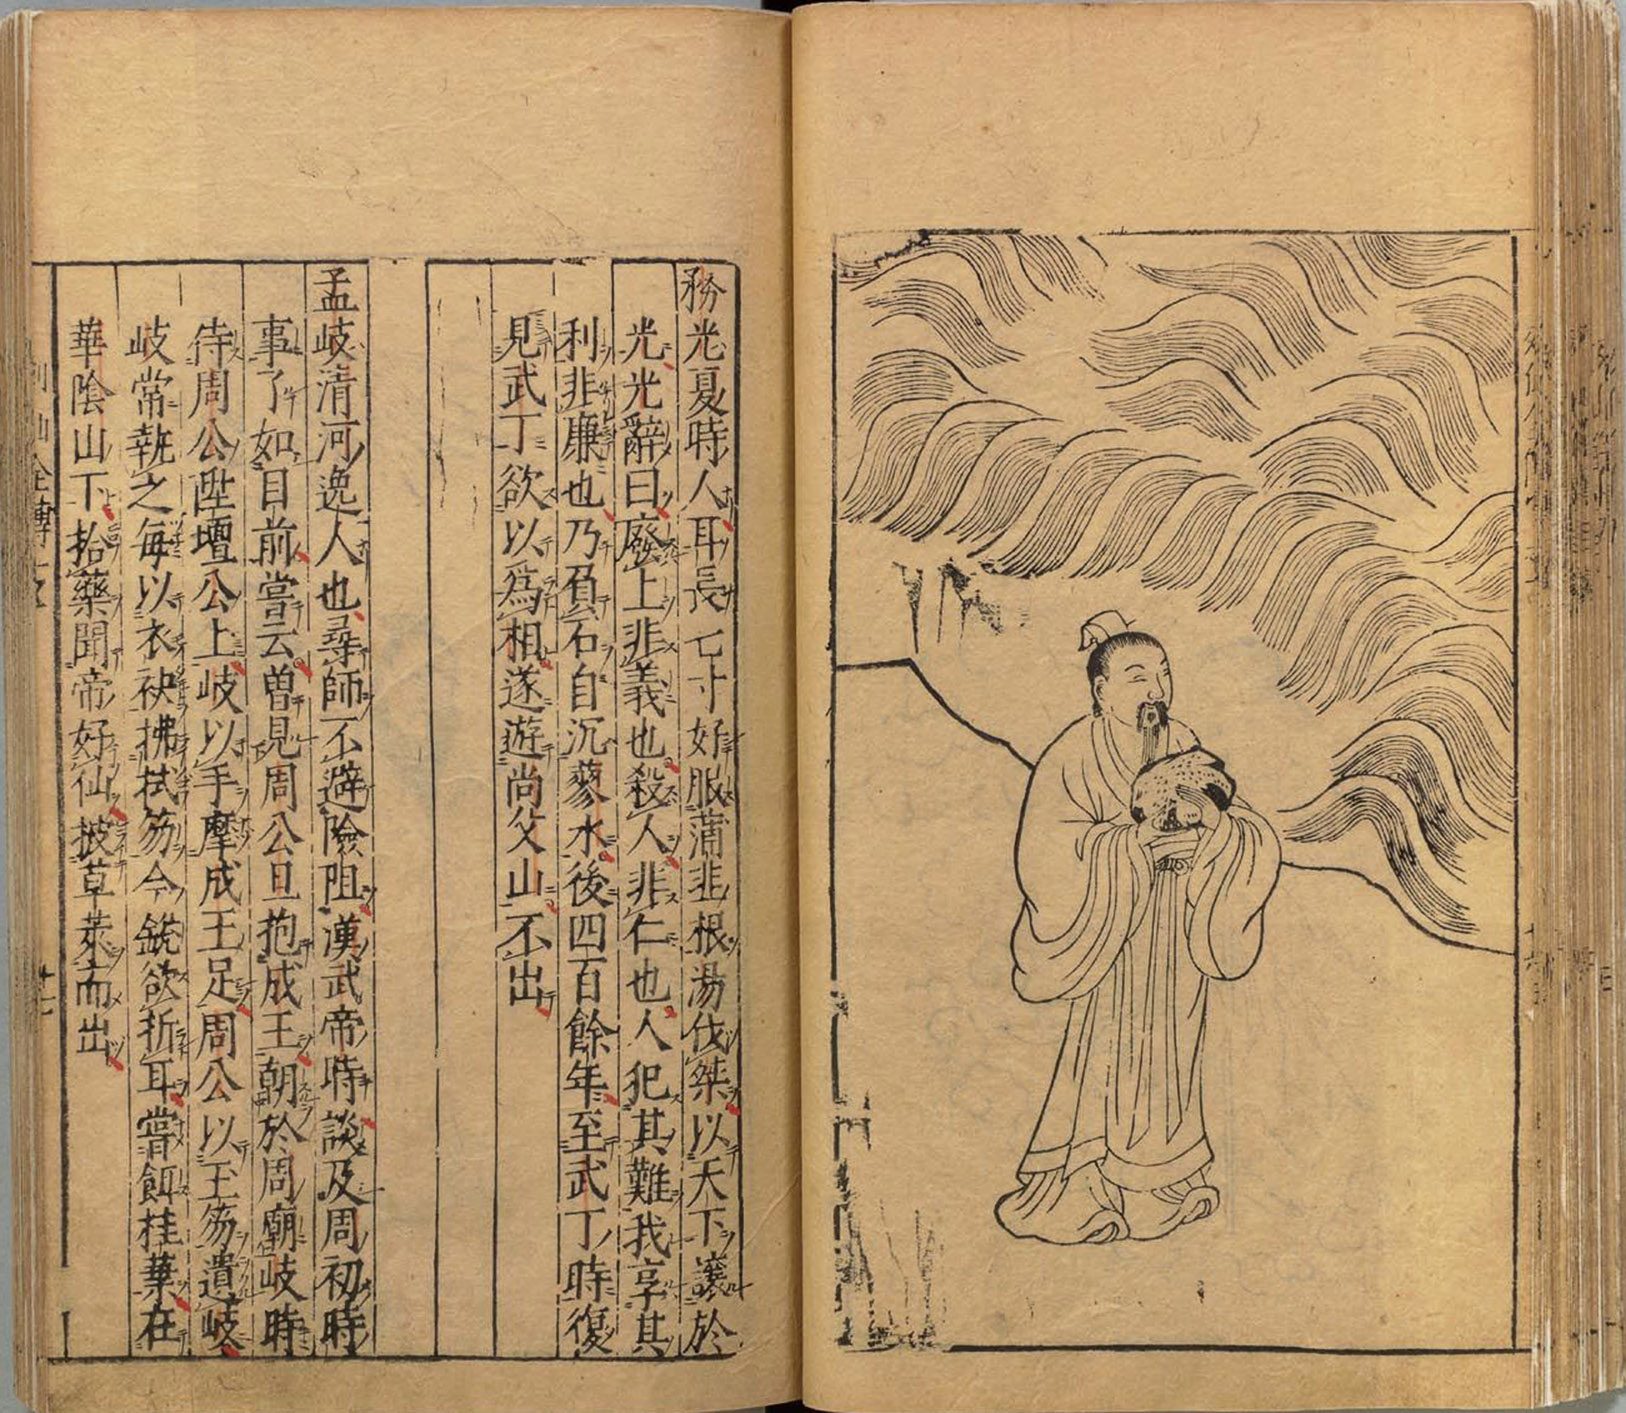 務光夏時人耳長七寸好服蒲韭根湯伐桀以天下讓於
光光辭曰廢上非義也殺人非仁也人犯其難我享其
利非廉也乃負石自沉蓼水後四百餘年至武丁時復
見武丁欲以為相遂遊尚父山不出
孟岐清河逸人也尋師不避險阻漢武帝時談及周初時
事了如目前嘗云曾見周公旦抱成王朝於周廟岐時
侍周公陞壇公上岐以手摩成王足周公以玉笏遺岐
岐常執之每以衣袂拂拭笏今銳欲折耳嘗餌桂葉在
華陰山下拾藥聞帝好仙披草萊而出